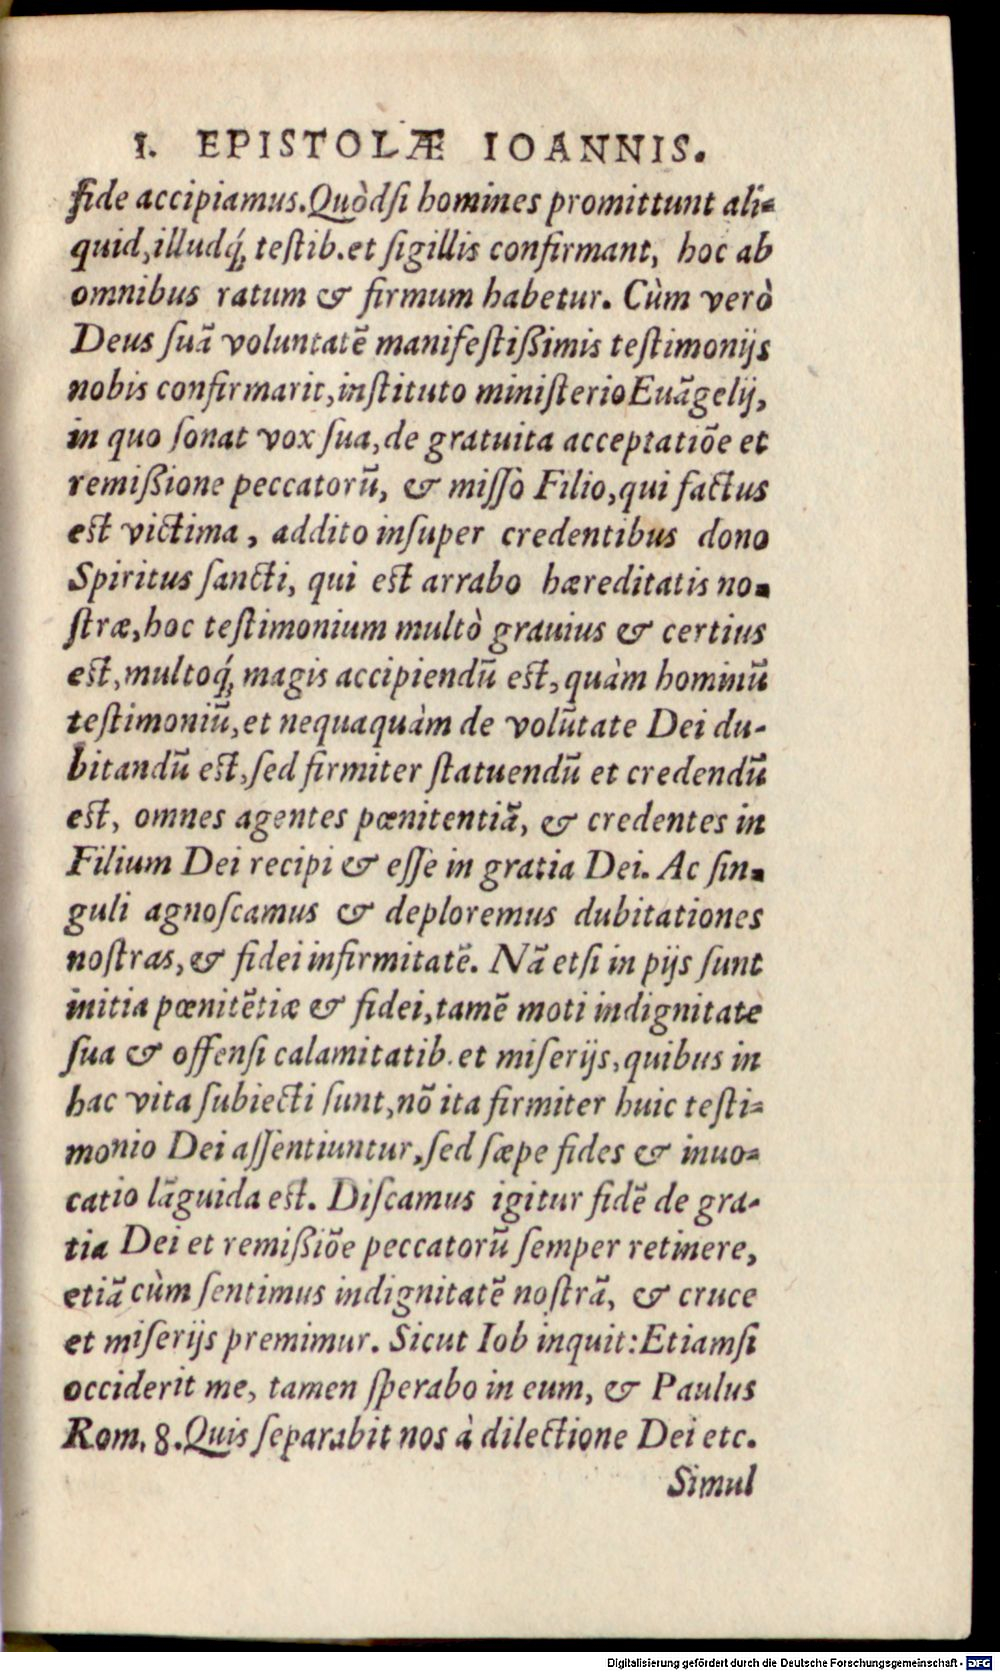 I. EPISTOLÆ IOANNIS.
fide accipiamus. Quòdſi homines promittunt ali-
quid, illudq́; teſtib. et ſigillis confirmant, hoc ab
omnibus ratum & firmum habetur. Cùm verò
Deus ſuā voluntatē manifeſtißimis teſtimonijs
nobis confirmarit, inſtituto miniſterio Euāgelij,
in quo ſonat vox ſua, de gratuita acceptatiōe et
remißione peccatorū, & miſſo Filio, qui factus
eſt victima, addito inſuper credentibus dono
Spiritus ſancti, qui eſt arrabo hæreditatis no-
ſtræ, hoc teſtimonium multò grauius & certius
eſt, multoq́; magis accipiendū eſt, quàm hominū
teſtimoniū, et nequaquàm de volūtate Dei du-
bitandū eſt, ſed firmiter ſtatuendū et credendū
eſt, omnes agentes pœnitentiā, & credentes in
Filium Dei recipi & eſſe in gratia Dei. Ac ſin-
guli agnoſcamus & deploremus dubitationes
noſtras, & fidei infirmitatē. Nā etſi in pijs ſunt
initia pœnitētiæ & fidei, tamē moti indignitate
ſua & offenſi calamitatib. et miſerijs, quibus in
hac vita ſubiecti ſunt, nō ita firmiter huic teſti-
monio Dei aſſentiuntur, ſed ſæpe fides & inuo-
catio lāguida eſt. Diſcamus igitur fidē de gra-
tia Dei et remißiōe peccatorū ſemper retinere,
etiā cùm ſentimus indignitatē noſtrā, & cruce
et miſerijs premimur. Sicut Iob inquit: Etiamſi
occiderit me, tamen ſperabo in eum, & Paulus
Rom. 8. Quis ſeparabit nos à dilectione Dei etc.
Simul
Digitalisierung gefördert durch die Deutsche Forschungsgemeinschaft - DFG